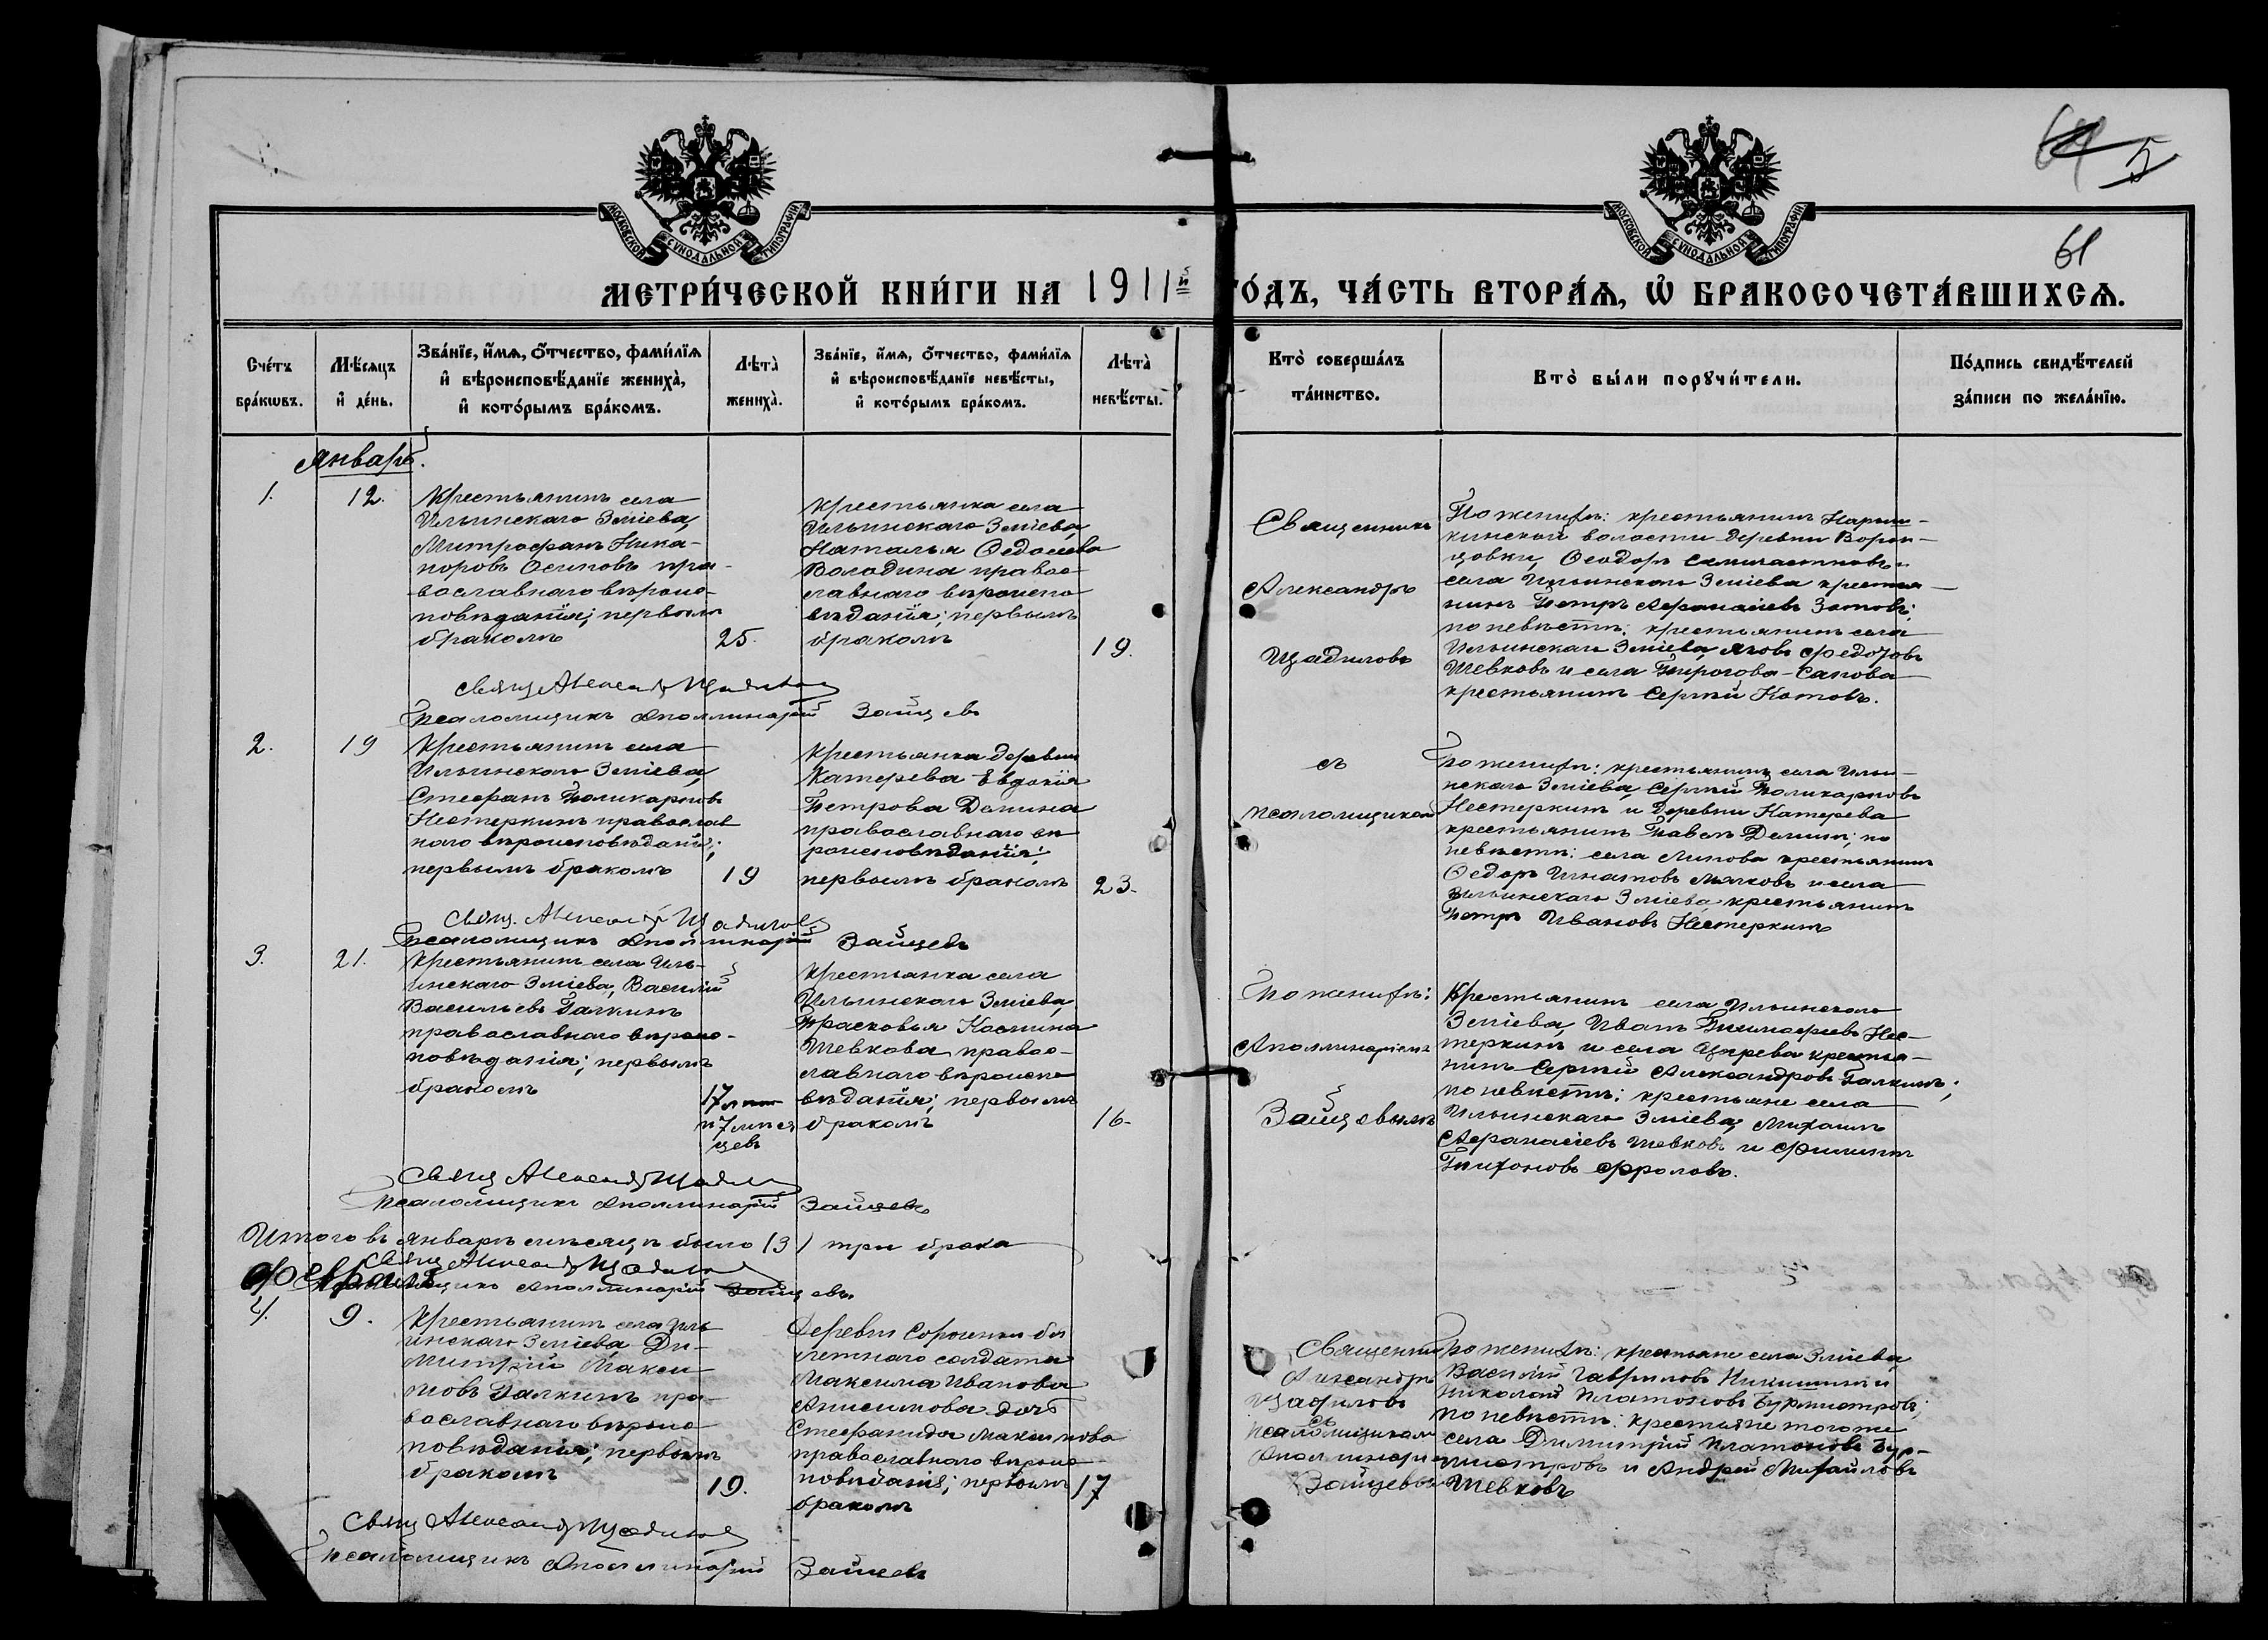 64 5
61
МОСКОВСКОЙ СѴНОДАЛЬНОЙ ТИПОГРАФІИ
МОСКОВСКОЙ СѴНОДАЛЬНОЙ ТИПОГРАФІИ
МЕТРИ́ЧЕСКОЙ КНИ́ГИ НА 1911й ГО́ДЪ, ЧА́СТЬ ВТОРА́Ѧ, Ѡ҆ БРАКОСОЧЕТА́ВШИХСѦ.
Сче́тъ
бра́кѡвъ.
Мѣ́сяцъ
и҆ де́нь.
Зва́нїе, и҆́мѧ, ѻ҆́тчество, фами́лїѧ
и҆ вѣроисповѣ́данїе жениха̀,
и҆ кото́рымъ бра́комъ.
Лѣта̀
жениха̀.
Зва́нїе, и҆́мѧ, ѻ҆́тчество, фами́лїѧ
и҆ вѣроисповѣ́данїе невѣ́сты,
и҆ кото́рымъ бра́комъ.
Лѣта̀
невѣ́сты.
Кто̀ соверша́лъ
та́инство.
Кто̀ бы́ли порꙋчи́тели.
По́дпись свидѣ́телей
за́писи по жела́нїю.
Январь.
1.
12.
Крестьянинъ села
Ильинскаго Зміева,
Митрофанъ Ника-
норовъ Осиповъ пра-
вославнаго вѣроис-
повѣданія; первымъ
бракомъ
25.
Крестьянка села
Ильинскаго Зміева,
Наталья Ѳедосеева
Володина правос-
лавнаго вѣроиспо
вѣданія; первымъ
бракомъ
19.
Священникъ
Александръ
Щадиловъ
По женихѣ: крестьянинъ Нарыш-
кинской волости деревни Ворон-
цовки, Ѳеодоръ
села Ильинскаго Зміева крестья-
нинъ Петръ Аѳанасіевъ Зотовъ;
по невѣстѣ: крестьянинъ села
Ильинскаго Зміева, Яковъ Федотовъ
Шевковъ и села Пирогова-Сапова
крестьянинъ Сергѣй Котовъ.
Свящ Александръ Щадиловъ
Псаломщикъ Аполлинарій Зайцевъ
2.
19
Крестьянинъ села
Ильинскаго Зміева,
Стефанъ Поликарповъ
Нестеркинъ православ
наго вѣроисповѣданія;
первымъ бракомъ
19
Крестьянка деревни
Катерева Евдокія
Петрова Демина
православнаго вѣ
роисповѣданія;
первымъ бракомъ
23.
съ
псаломщикомъ
По женихѣ: крестьянинъ села Ильи-
нскаго Зміева, Сергѣй Поликарповъ
Нестеркинъ и деревни Катерева
крестьянинъ Павелъ Деминъ; по
невѣстѣ: села Липова крестьянинъ
Ѳедоръ Игнатовъ Мячковъ и села
Ильинскаго Зміева, крестьянинъ
Петръ Ивановъ Нестеркинъ
Свящ. Александръ Щадиловъ
Псаломщикъ Аполлинарій Зайцевъ
3.
21.
Крестьянинъ села Иль-
инскаго Зміева, Василій
Васильевъ Галкинъ
православнаго вѣроис-
повѣданія; первымъ
бракомъ
17 лѣт
и 7 мѣся
цевъ
Крестьянка села
Ильинскаго Зміева,
Прасковья Космина
Шевкова правос-
лавнаго вѣроиспо
вѣданія; первымъ
бракомъ
16.
Аполлинаріемъ
Зайцевымъ
По женихѣ: Крестьянинъ села Ильинскаго
Зміева, Иванъ Тимофіевъ Нес-
теркинъ и села Царева крестья-
нинъ Сергѣй Александровъ Галкинъ;
по невѣстѣ: крестьяне села
Ильинскаго Зміева, Михаилъ
Аѳанасіевъ Шевковъ и Филиппъ
Тихоновъ Фроловъ.
Свящ Александръ Щадиловъ
Псаломщикъ Аполлинарій Зайцевъ
Итого въ январѣ мѣсяцѣ было /3/ три брака
Свящ Александръ Щадиловъ
Псаломщикъ Аполлинарій Зайцевъ.
Февраль
4.
9.
Крестьянинъ села Иль
инскаго Зміева, Ди-
митрій Макси
мовъ Галкинъ пра-
вославнаго вѣроис
повѣданія; первымъ
бракомъ
19.
Деревни Сорочинки би
летнаго солдата
Максима Иванова
Анисимова дочь
Стефанида Максимова
православнаго вѣроис
повѣданія; первымъ
бракомъ
17
Священникъ
Александръ
Щадиловъ
съ
псаломщикомъ
Аполлинаріемъ
Зайцевымъ
По женихѣ: крестьяне села Зміева,
Василій Гавриловъ Никишинъ и
Николай Платоновъ Бурмистровъ;
по невѣстѣ: крестьяне того же
села Димитрій Платоновъ Бур-
мистровъ и Андрей Михайловъ
Шевковъ
Свящ Александръ Щадиловъ
Псаломщикъ Аполлинарій Зайцевъ